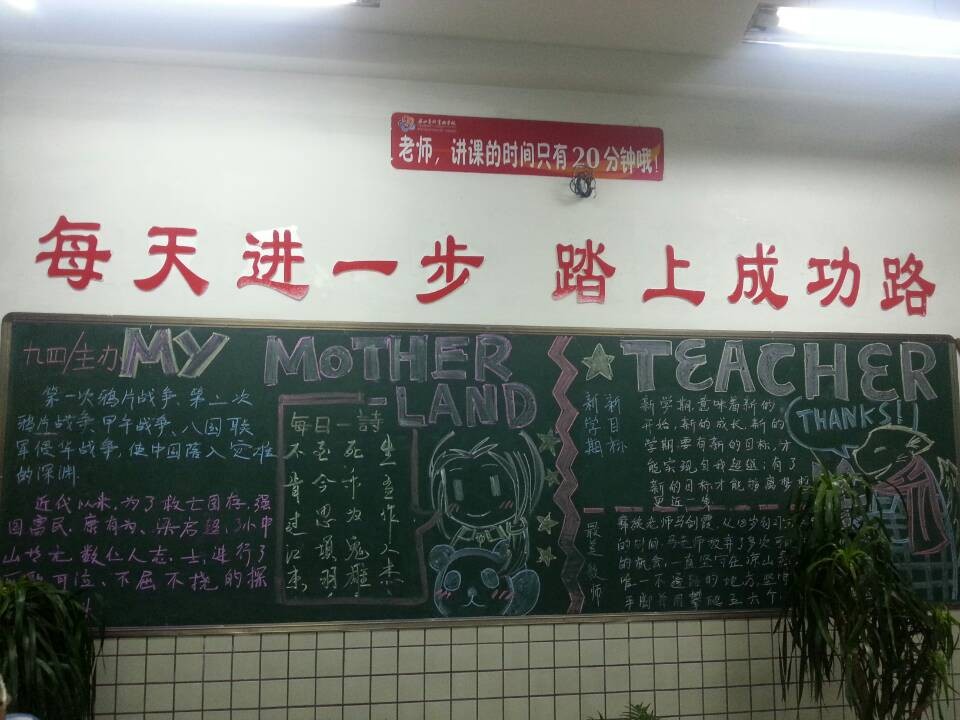 老师，讲课的时间只有20分钟哦！
每天进一步 踏上成功路
九四/主办
MY MOTHER
LAND
第一次鸦片战争、第二次
鸦片战争、甲午战争、八国联
军侵华战争，使中国陷入灾难
的深渊.
近代以来，为了救亡图存，强
国富民，康有为、梁启超、孙中
山等无数仁人志士，进行了
不屈不挠的探
每日一詩
生当作人杰
死亦为鬼雄
至今思項羽
不肯过江东
TEACHER
THANKS!
新学期
新目标
新学期，意味着新的
开始，新的成长，新的
学期要有新的目标，才
能实现自我超越；有了
新的目标才能
最美教师
的时间，马老师放弃了多次
的机会，一直坚守在